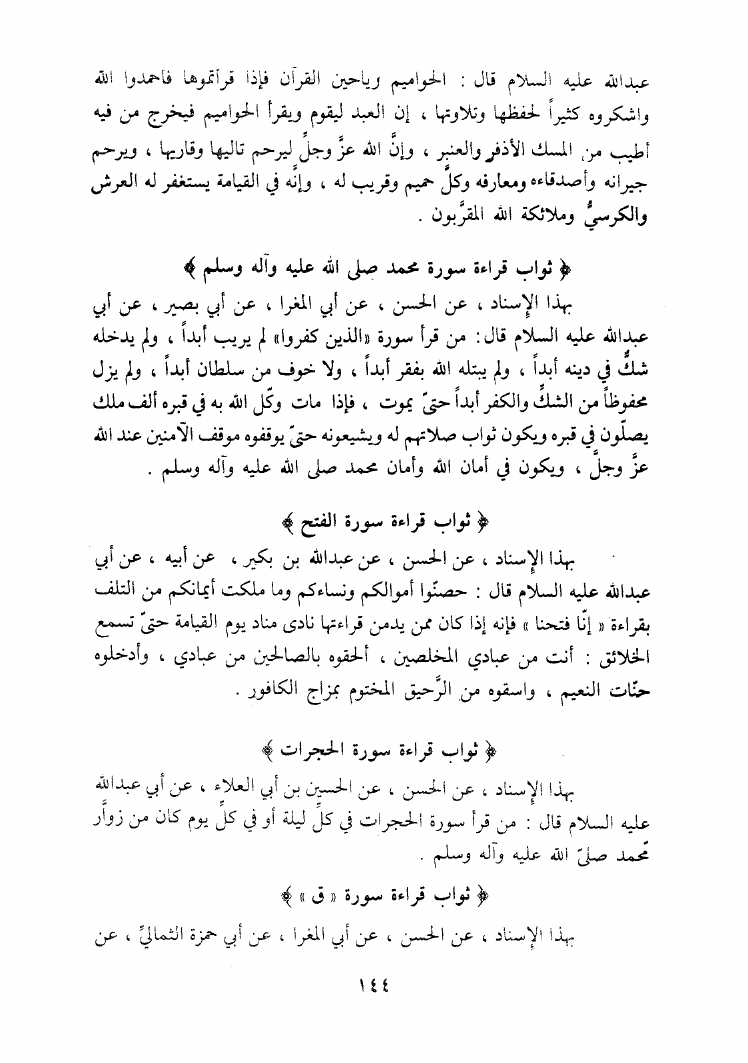 عبدالله عليه السلام قال : الحواميم رياحين القرآن فإذا قرأتموها فاحمدوا الله
واشكروه كثيراً لحفظها وتلاوتها ، إن العبد ليقوم ويقرأ الحواميم فيخرج من فيه
أطيب من المسك الأذفر والعنبر ، وإنَّ الله عزَّ وجلَّ ليرحم تاليها وقاريها ، ويرحم
جيرانه وأصدقاءه ومعارفه وكلَّ حميم وقريب له ، وإنَّه في القيامة يستغفر له العرش
والكرسيُّ وملائكة الله المقرَّبون .
﴿ ثواب قراءة سورة محمد صلى الله عليه وآله وسلم ﴾
بهذا الإسناد ، عن الحسن ، عن أبي المغرا ، عن أبي بصير ، عن أبي
عبدالله عليه السلام قال : من قرأ سورة «الذين كفروا» لم يريب أبداً ، ولم يدخله
شكٌّ في دينه أبداً ، ولم يبتله الله بفقر أبداً ، ولا خوف من سلطان أبداً ، ولم يزل
محفوظاً من الشكِّ والكفر أبداً حتىّ يموت ، فإذا مات وكّل الله به في قبره ألف ملك
يصلّون في قبره ويكون ثواب صلاتهم له ويشيعونه حتىّ يوقفوه موقف الآمنين عند الله
عزَّ وجلَّ ، ويكون في أمان الله وأمان محمد صلى الله عليه وآله وسلم .
﴿ ثواب قراءة سورة الفتح ﴾
بهذا الإسناد ، عن الحسن ، عن عبدالله بن بكير ، عن أبيه ، عن أبي
عبدالله عليه السلام قال : حصنّوا أموالكم ونساءكم وما ملكت أيمانكم من التلف
بقراءة « إنّا فتحنا » فإنه إذا كان ممن يدمن قراءتها نادى مناد يوم القيامة حتىّ تسمع
الخلائق : أنت من عبادي المخلصين ، ألحقوه بالصالحين من عبادي ، وأدخلوه
جنّات النعيم ، واسقوه من الرَّحيق المختوم بمزاج الكافور .
﴿ ثواب قراءة سورة الحجرات ﴾
بهذا الإسناد ، عن الحسن ، عن الحسين بن أبي العلاء ، عن أبي عبدالله
عليه السلام قال : من قرأ سورة الحجرات في كلِّ ليلة أو في كلِّ يوم كان من زوَّار
محّمد صلىّ الله عليه وآله وسلم .
﴿ ثواب قراءة سورة « ق » ﴾
بهذا الإسناد ، عن الحسن ، عن أبي المغرا ، عن أبي حمزة الثماليِّ ، عن
١٤٤